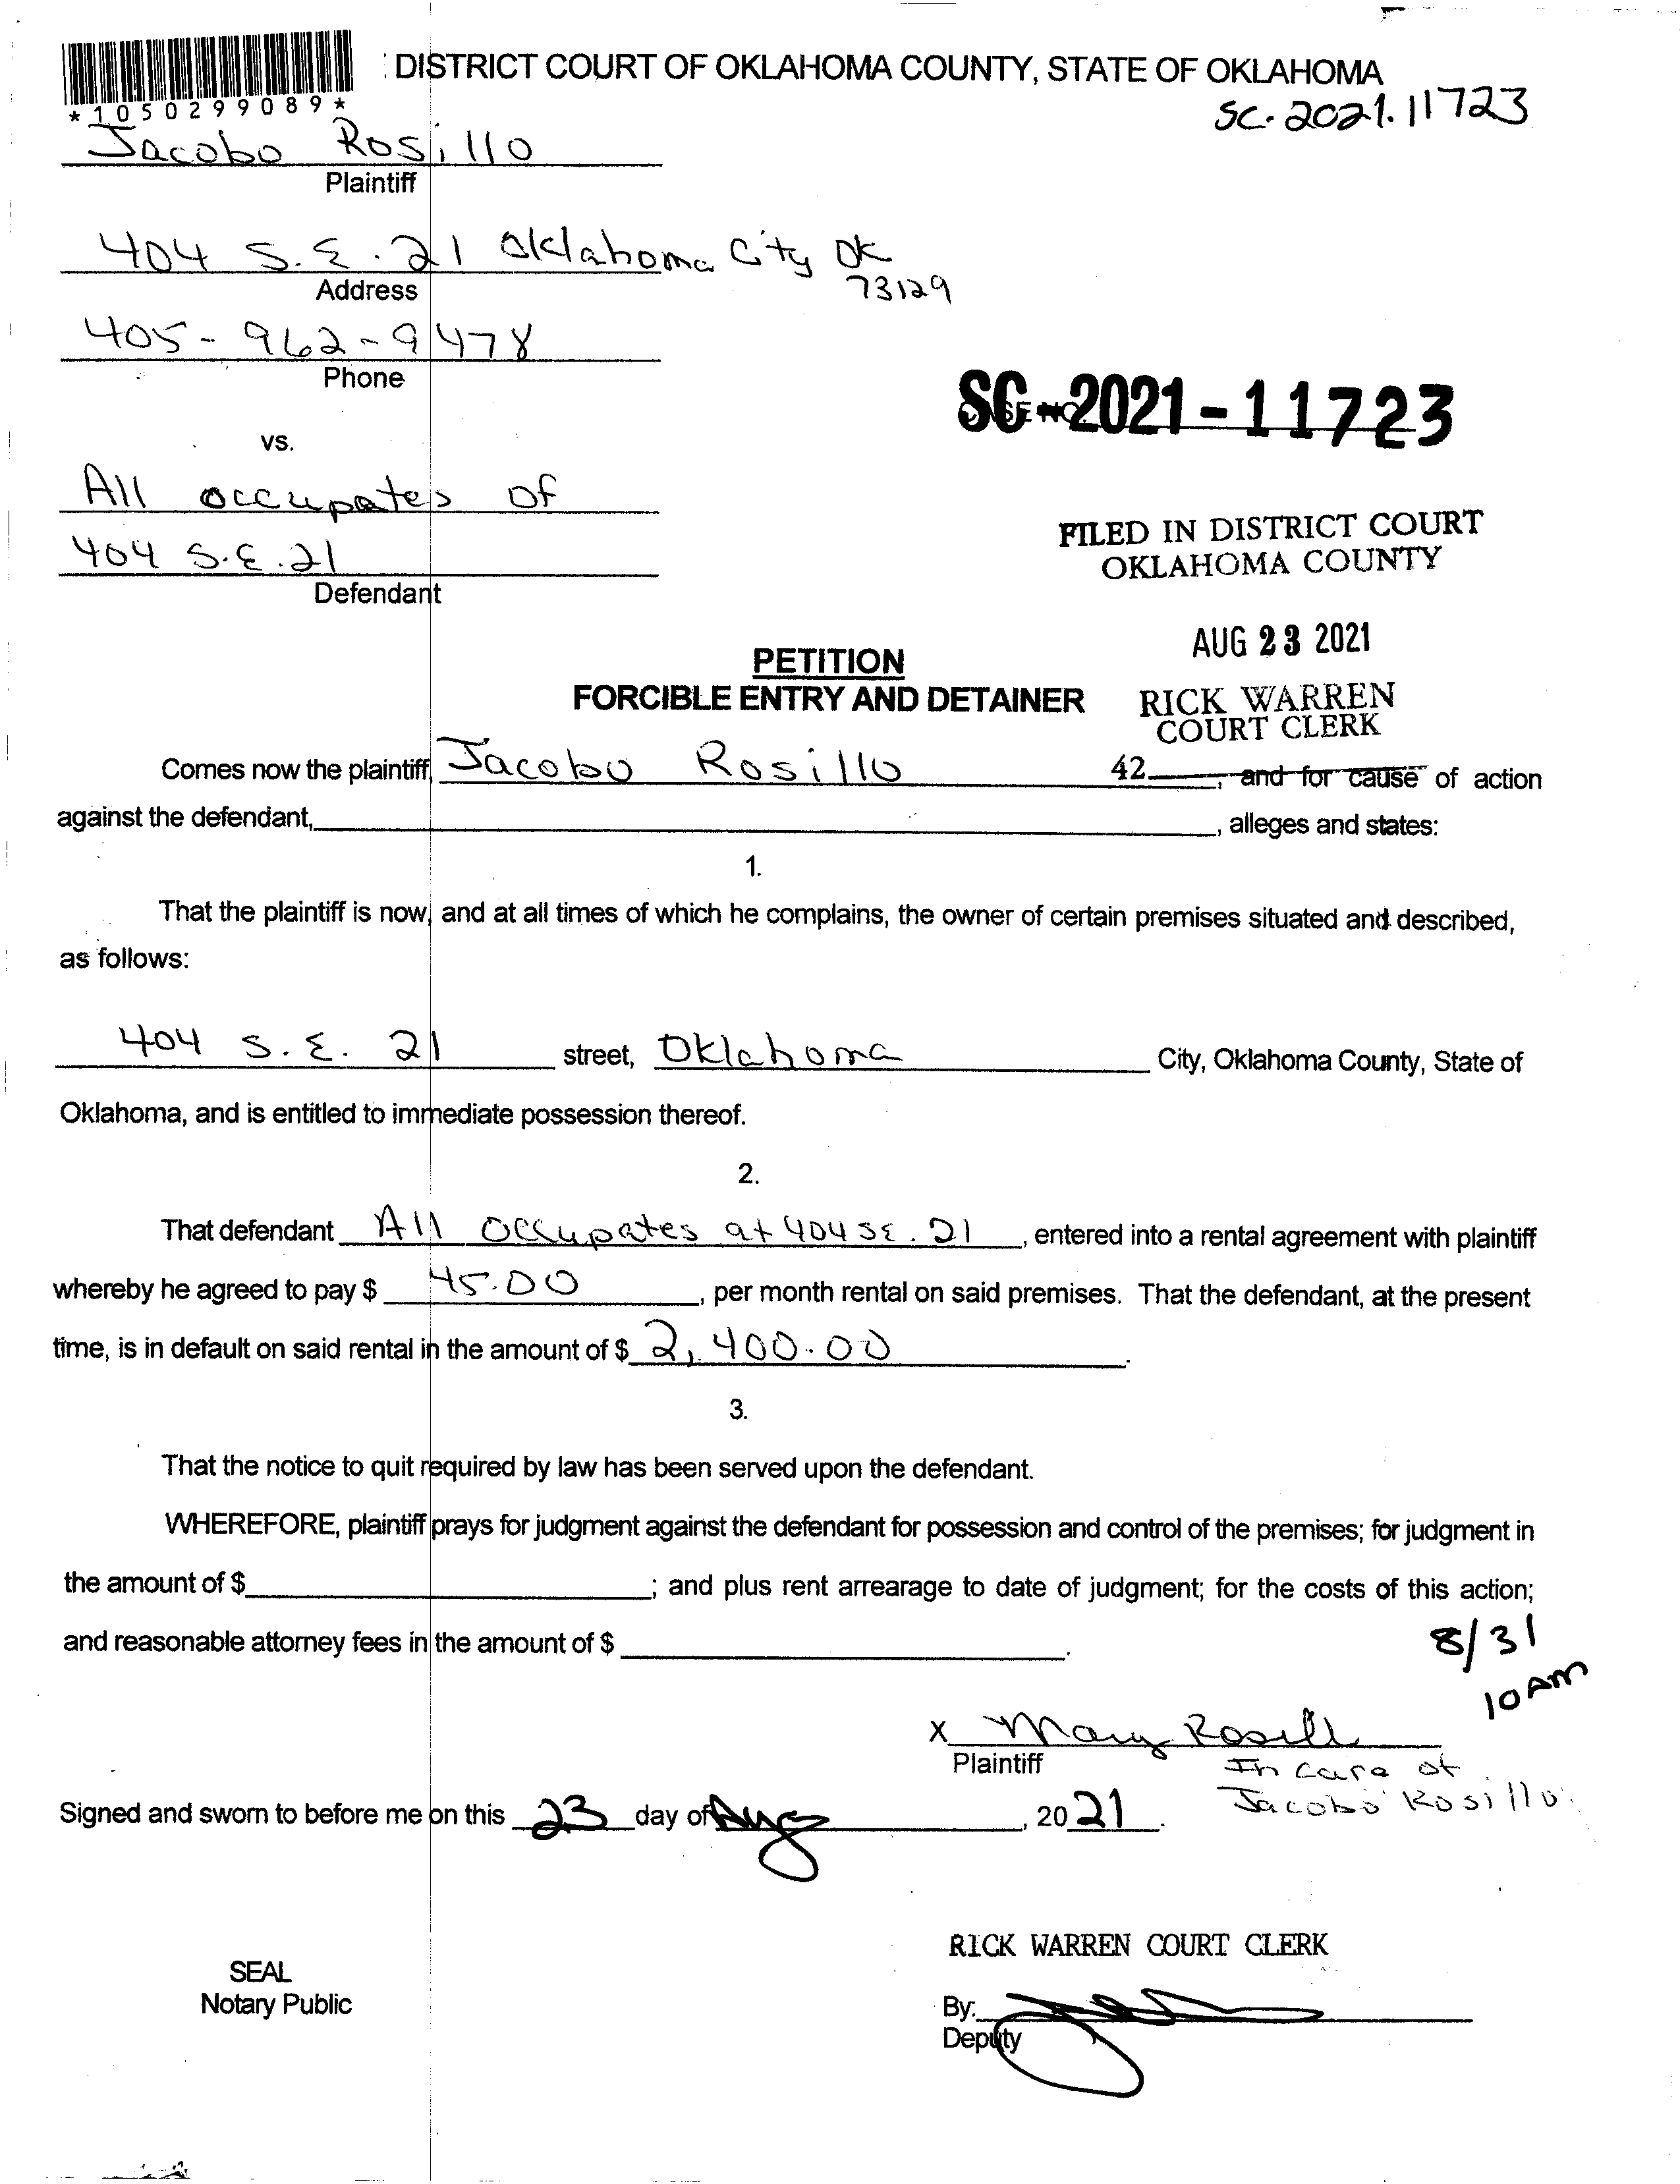 : DISTRICT COURT OF OKLAHOMA COUNTY, STATE OF OKLAHOMA
*1050299089*
SC. 2021. 11723
Jacobo Rosillo
Plaintiff
404 S.E. 21 Oklahoma City OK
73129
Address
405-962-9478
Phone
SC-2021-11723
vs.
All occupates of
404 S.E. 21
Defendant
FILED IN DISTRICT COURT
OKLAHOMA COUNTY
AUG 23 2021
PETITION
FORCIBLE ENTRY AND DETAINER
RICK WARREN
COURT CLERK
Comes now the plaintiff, Jacobo Rosillo 42 , and for cause of action
against the defendant, , alleges and states:
1.
That the plaintiff is now, and at all times of which he complains, the owner of certain premises situated and described,
as follows:
404 S.E. 21 street, Oklahoma City, Oklahoma County, State of
Oklahoma, and is entitled to immediate possession thereof.
2.
That defendant All occupates at 404 SE. 21 , entered into a rental agreement with plaintiff
whereby he agreed to pay $ 45.00 , per month rental on said premises. That the defendant, at the present
time, is in default on said rental in the amount of $ 2,400.00 .
3.
That the notice to quit required by law has been served upon the defendant.
WHEREFORE, plaintiff prays for judgment against the defendant for possession and control of the premises; for judgment in
the amount of $ ; and plus rent arrearage to date of judgment; for the costs of this action;
and reasonable attorney fees in the amount of $ .
8/31
10 AM
X Mary Rosillo
Plaintiff
In care of
Jacobo Rosillo
Signed and sworn to before me on this 23 day of Aug , 20 21 .
RICK WARREN COURT CLERK
SEAL
Notary Public
By:
Deputy